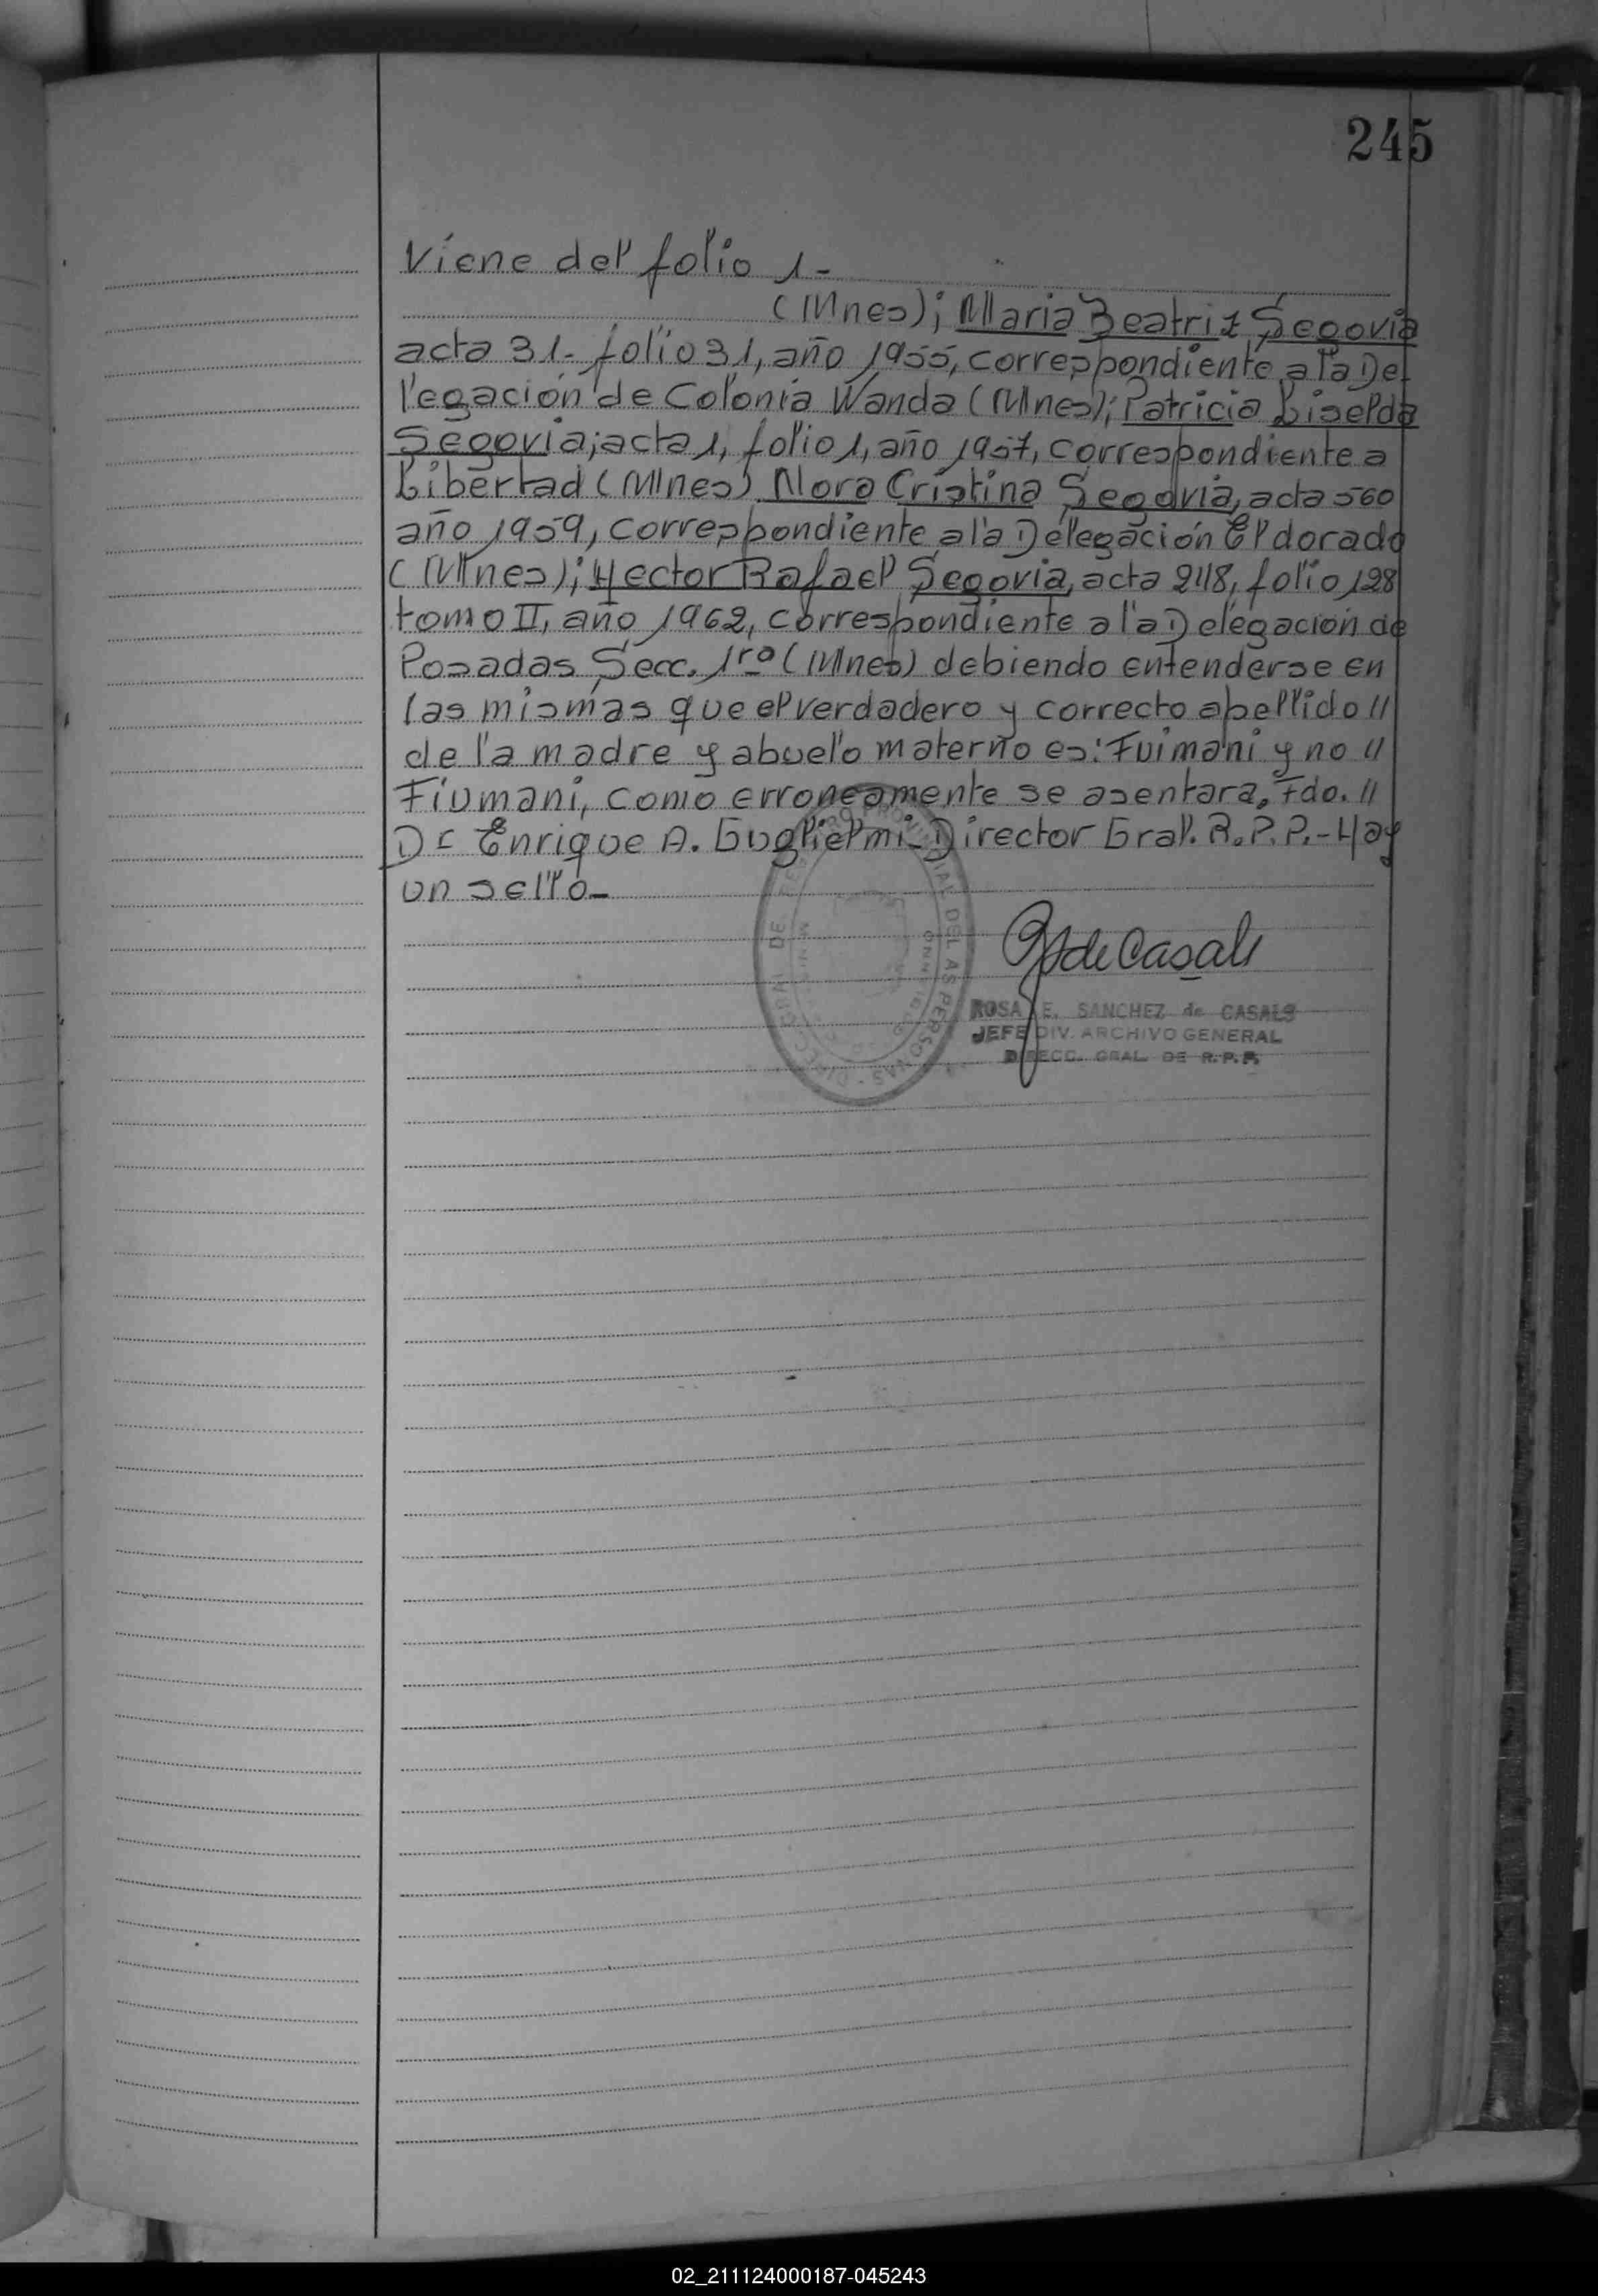 245
Viene del folio 1-
(Mnes); Maria Beatriz Segovia
acta 31- folio 31, año 1955, correspondiente a la De
legación de Colonia Wanda (Mnes); Patricia Liselda
Segovia; acta 1, folio 1, año 1957, correspondiente a
Libertad (Mnes) Nora Cristina Segovia, acta 560
año 1959, correspondiente a la Delegación Eldorado
(Mnes); Hector Rafael Segovia, acta 248, folio 128
tomo II, año 1962, correspondiente a la Delegación de
Posadas Secc. 1ra (Mnes) debiendo entenderse en
las mismas que el verdadero y correcto apellido //
de la madre y abuelo materno es: Fuimani y no //
Fiumani, como erroneamente se asentara. Fdo. //
Dr Enrique A. Guglielmi - Director Gral. R.P.P. - Hay
un sello-
de Casals
ROSA E. SANCHEZ de CASALS
JEFE DIV. ARCHIVO GENERAL
DIRECC. GRAL. DE R.P.P.
DEL AS PERSONAS
02_211124000187-045243